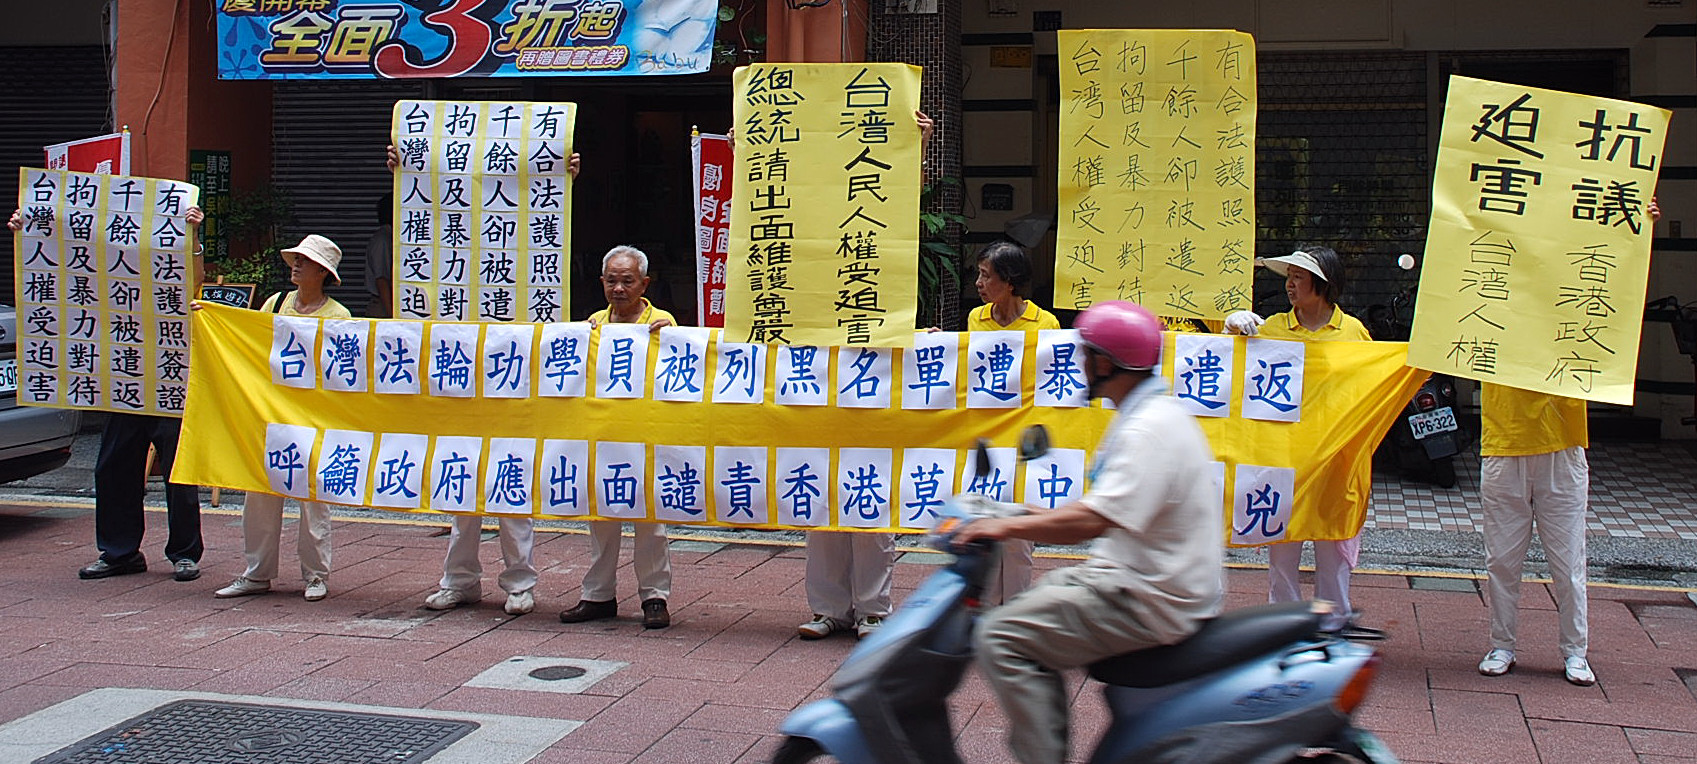 慶開幕
全面3折起
再贈圖書禮券
有合法護照簽證
千餘人卻被遣返
拘留及暴力對待
台灣人權受迫害
有合法護照簽
千餘人卻被遣
拘留及暴力對
台灣人權受迫
台湾人民人權受迫害
總統請出面維護尊嚴
有合法護照簽證
千餘人卻被遣返
拘留及暴力對待
台湾人權受迫害
抗議香港政府
迫害台湾人權
台灣法輪功學員被列黑名單遭暴
遣返
呼籲政府應出面譴責香港莫做中
兇
XP6-322